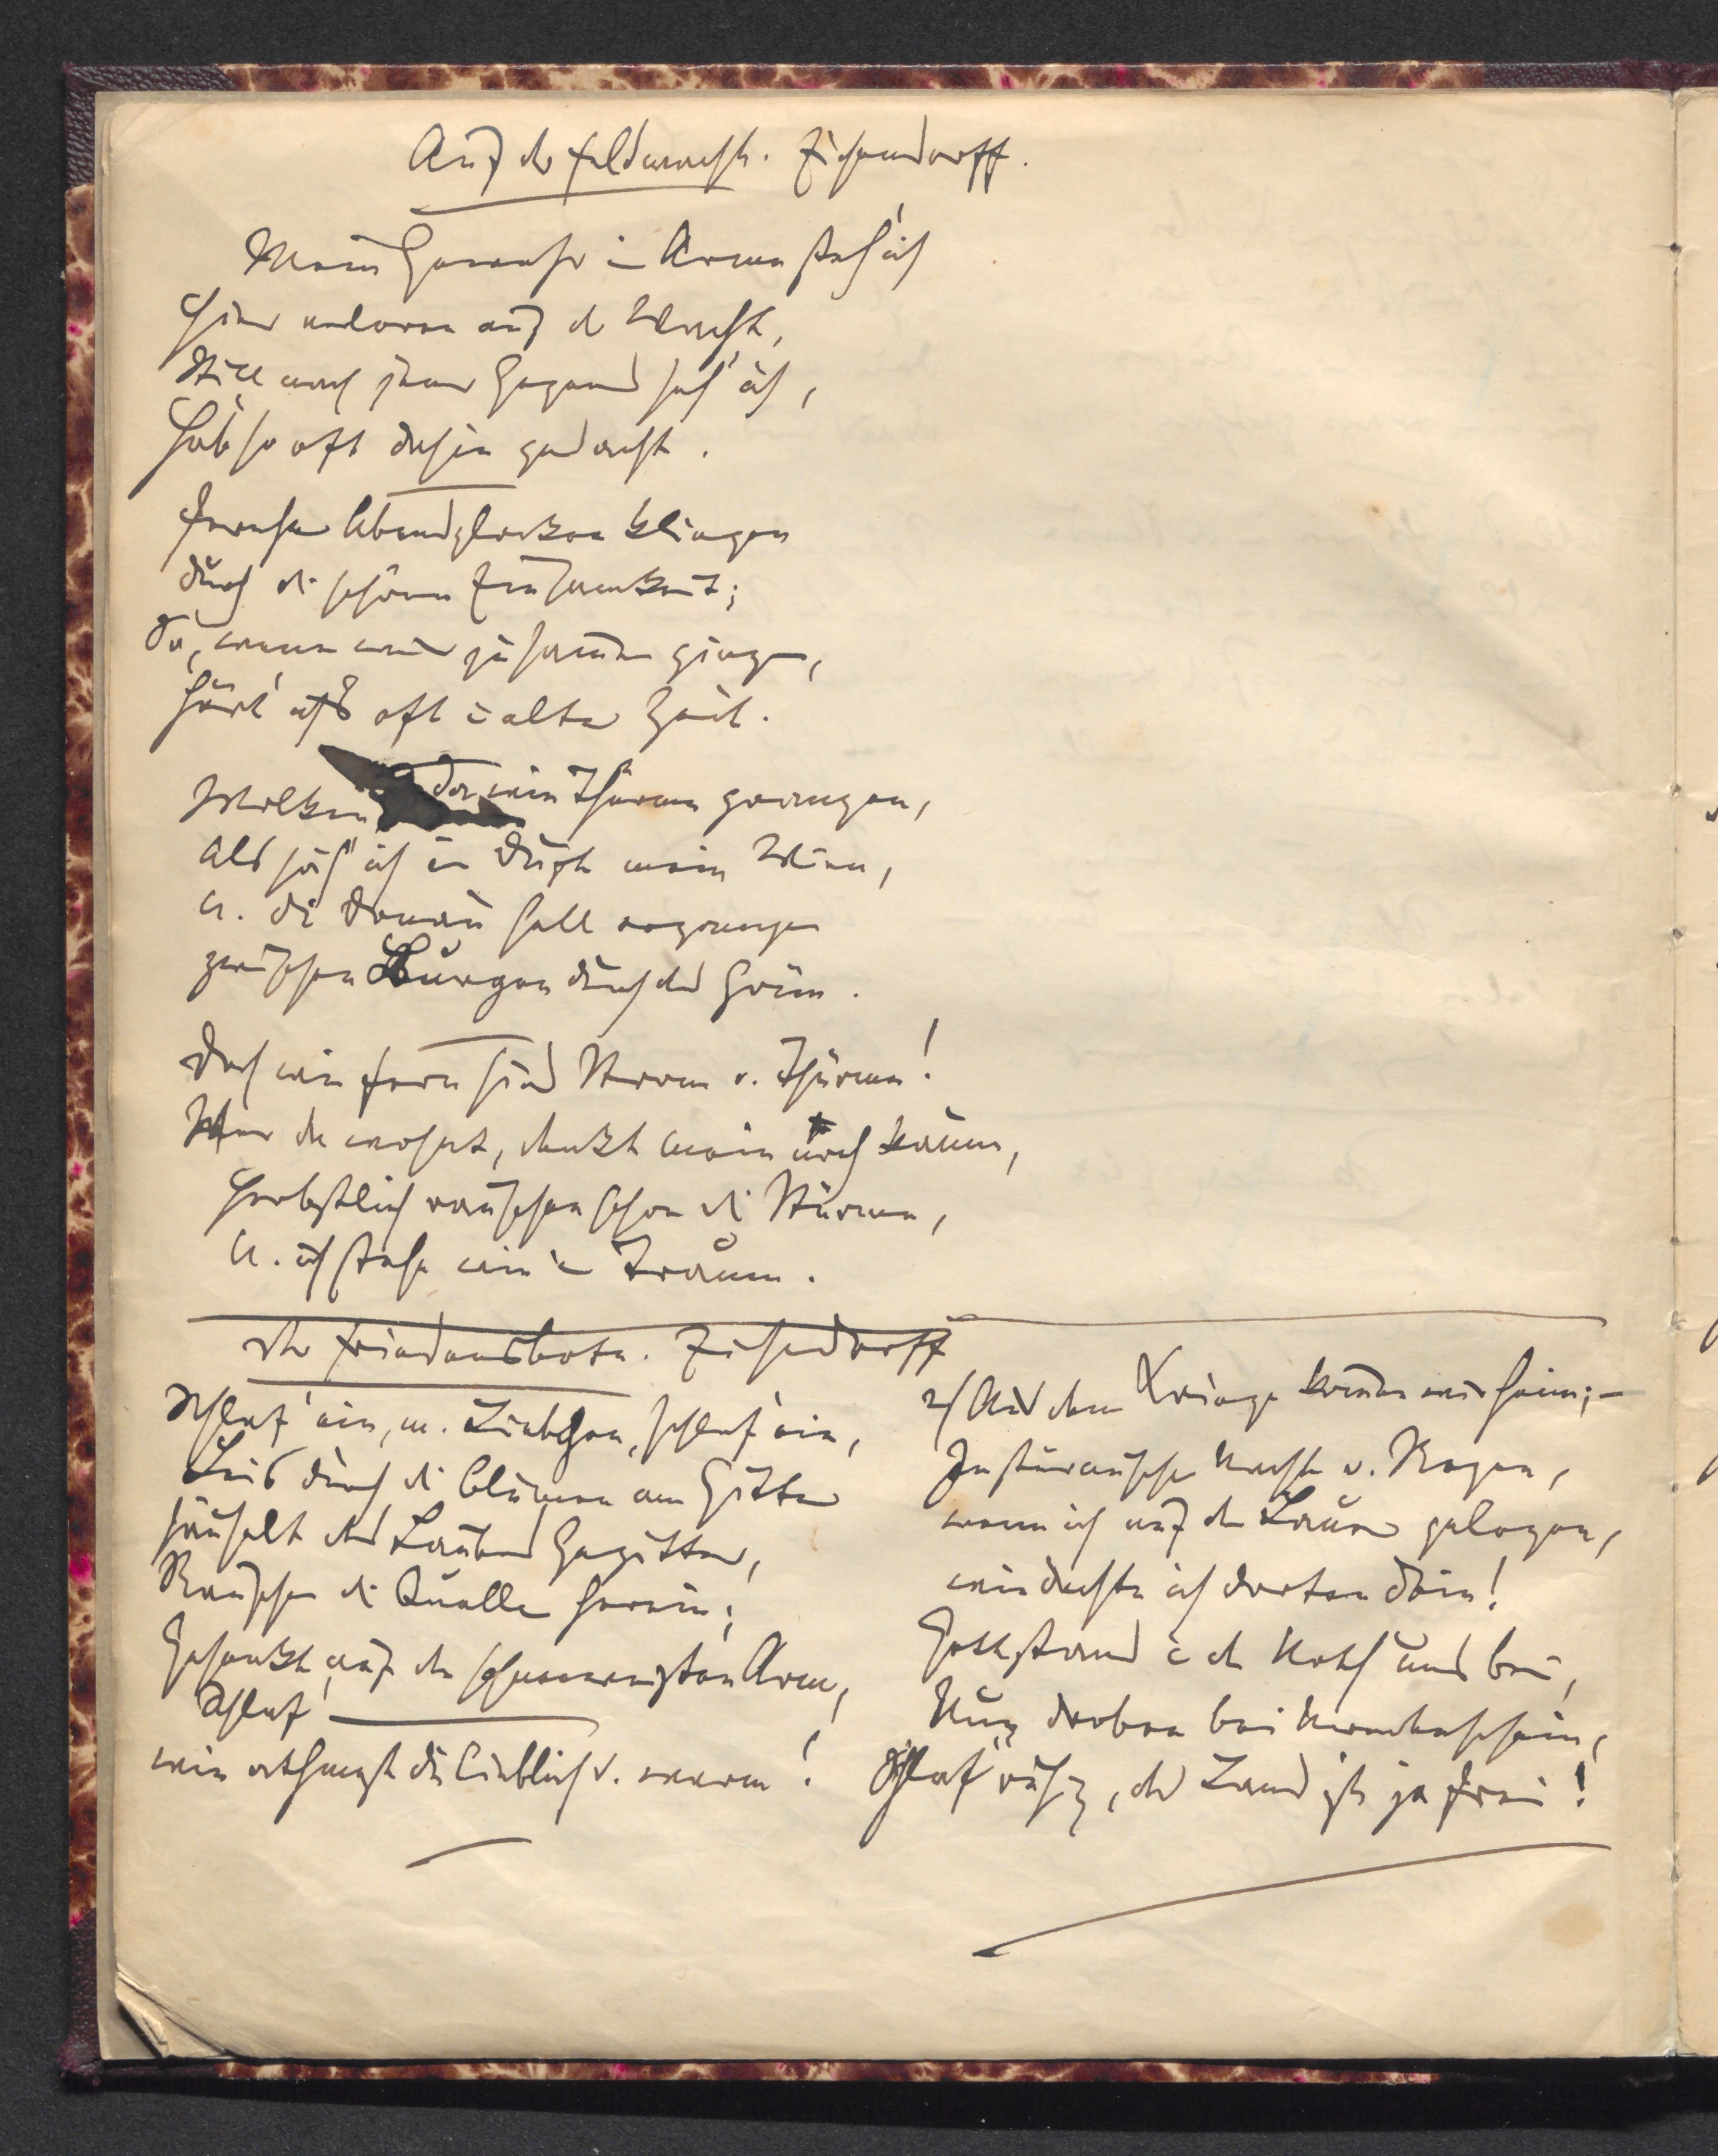 Auf der Feldwacht. Eichendorff.
Mein Gewehr im Arme steh' ich
Hier verloren auf der Wacht,
Still nach jener Gegend seh' ich,
Hab' so oft dahin gedacht.
Fernher Abendglocken klingen
durch die schöne Einsamkeit;
So, wenn wir zusammen gingen,
Hört' ich's oft in alter Zeit.
Wolken da wie Thürme prangen,
Als säh' ich im Duft mein Wien,
U. die Donau hell ergangen
zwischen Burgen durch das Grün.
Doch wie fern sind Strom u. Thürme!
Wer da wohnt, denkt mein noch kaum,
Herbstlich rauschen schon die Stürme,
U. ich stehe wie im Traum.
Der Friedensbote. Eichendorff
Schlaf' ein, m. Liebchen, schlaf' ein,
Leis durch die Blumen am Gitter
säuselt des Laubes Gezitter,
Rauschen die Quellen herein;
Gesenkt auf den schneeweißen Arm,
Schlaf'
wie athmest du lieblich u. warm!
2/ Aus dem Kriege kommen wir heim;—
In stürmischer Nacht u. Regen,
wenn ich auf der Lauer gelegen,
wie dachte ich dorten Dein!
Gott stand in der Noth uns bei,
Nun droben bei Mondenschein,
Schlaf' ruhig, das Land ist ja frei!